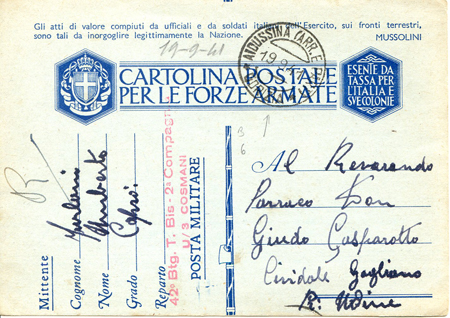 Gli atti di valore compiuti da ufficiali e da soldati italiani dell'Esercito, sui fronti terrestri,
sono tali da inorgoglire legittimamente la Nazione. MUSSOLINI
19-9-41
AIDUSSINA
CARTOLINA POSTALE
PER LE FORZE ARMATE
ESENTE DA
TASSA PER
L'ITALIA E
SUE COLONIE
B
6
R
Mittente
Cognome
Nome Umberto
Grado
Reparto
42° Btg. T. Bis - 2ª Compagn
U/3 COSMANI
POSTA MILITARE
Al Reverando
Parraco Don
Giudo Gasparotto
Cividale Gagliano
Udine